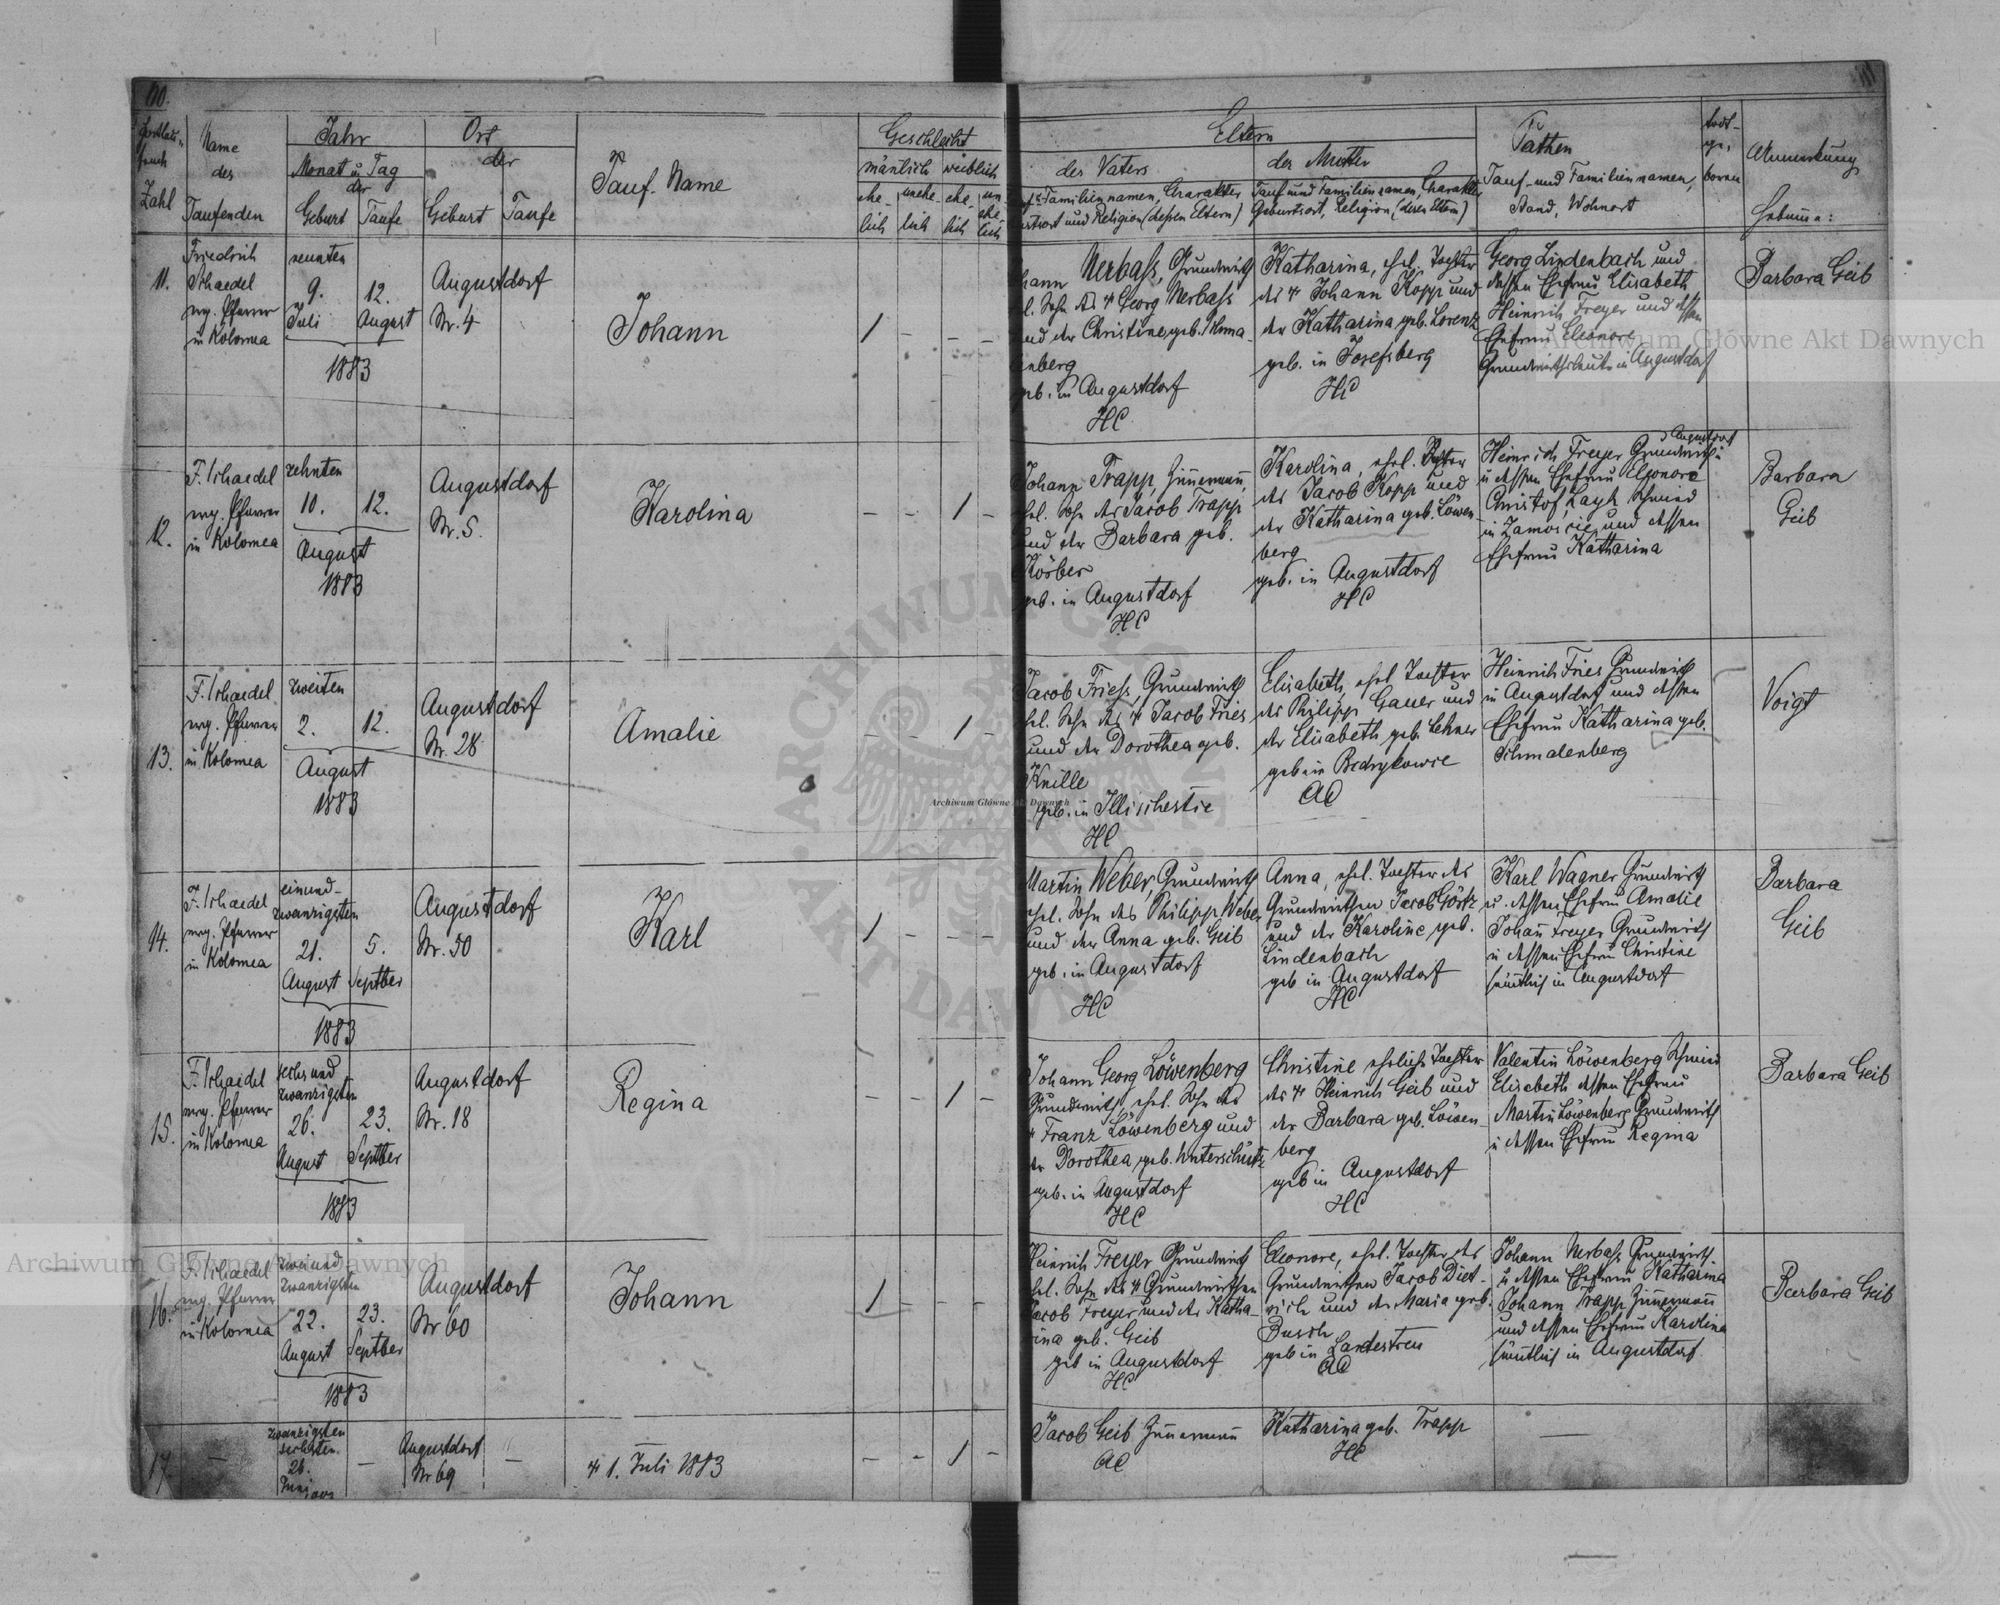 110.
111
Fortlau-
fende
Zahl
Name
des
Taufenden
Jahr
Monat u Tag
der
Geburt Taufe
Ort
der
Geburt Taufe
Tauf-Name
Geschlecht
mänlich weiblich
ehe-
lich
unehe-
lich
ehe-
lich
un
ehe-
lich
Eltern
des Vaters
Familiennamen, Charakter
und Religion (dessen Eltern)
der Mutter
Tauf und Familiennamen, Charakter
Geburtsort, Religion (deren Eltern)
Pathen
Tauf- und Familiennamen,
Stand, Wohnort
todt-
ge-
boren
Anmerkung
Hebame:
11.
Friedrich
Schaedel
evg. Pfarrer
in Kolomea
neunten
9.
Juli
12.
August
1883
Augustdorf
Nr. 4
Johann
1 - - -
hann Nerbass, Grundwirth
l. Sohn des + Georg Nerbass
und der Christine geb. Schma-
lenberg
geb. in Augustdorf
HC
Katharina, ehel. Tochter
des + Johann Kopp und
der Katharina geb. Lorenz
geb. in Josefsberg
HC
Georg Lindenbach und
dessen Ehefrau Elisabeth
Heinrich Freyer und dessen
Ehefrau Eleonore
Grundwirthsleute in Augustdorf
Barbara Geib
12.
F. Schaedel
evg. Pfarrer
in Kolomea
zehnten
10.
12.
August
1883
Augustdorf
Nr. 5.
Karolina
- - 1 -
Johann Trapp, Zimmermann,
ehel. Sohn des Jacob Trapp
und der Barbara geb.
Körber
geb. in Augustdorf
HC
Karolina, ehel. Tochter
des Jacob Kopp und
der Katharina geb. Löwen-
berg
geb. in Augustdorf
HC
Augustdorf
Heinrich Freyer Grundwirth in
u dessen Ehefrau Eleonore
Christof Schmied
in Zamoscie und dessen
Ehefrau Katharina
Barbara
Geib
13.
F. Schaedel
evg. Pfarrer
in Kolomea
zweiten
2.
12.
August
1883
Augustdorf
Nr. 28
Amalie
- - 1 -
Jacob Friess, Grundwirth
ehel. Sohn des + Jacob Fries
und der Dorothea geb.
Knille
geb. in Illischestie
HC
Elisabeth, ehel Tochter
des Philipp Gauer und
der Elisabeth geb. Lehner
geb in Bedrykowce
AC
Heinrich Fries Grundwirth
in Augustdorf und dessen
Ehefrau Katharina geb.
Schmalenberg
Voigt
14.
F. Schaedel
evg. Pfarrer
in Kolomea
einund-
zwanzigsten
21.
August
5.
Septber
1883
Augustdorf
Nr. 50
Karl
1 - - -
Martin Weber, Grundwirth
ehel. Sohn des Philipp Weber
und der Anna geb. Geib
geb. in Augustdorf
HC
Anna, ehel. Tochter des
Grundwirthen Jacob Görtz
und der Karoline geb.
Lindenbach
geb in Augustdorf
HC
Karl Wagner Grundwirth
u. dessen Ehefrau Amalie
Johann Freyer Grundwirth
u dessen Ehefrau Christine
sämtlich in Augustdorf
Barbara
Geib
15.
F. Schaedel
evg. Pfarrer
in Kolomea
sechsund
zwanzigsten
26.
August
23.
Septber
1883
Augustdorf
Nr. 18
Regina
- - 1 -
Johann Georg Löwenberg
Grundwirth, ehel. Sohn des
+ Franz Löwenberg und
der Dorothea geb. Unterschütz
geb. in Augustdorf
HC
Christine eheliche Tochter
des + Heinrich Geib und
der Barbara geb. Löwen-
berg
geb in Augustdorf
HC
Valentin Löwenberg Schmied
Elisabeth dessen Ehefrau
Martin Löwenberg Grundwirth
u dessen Ehefrau Regina
Barbara Geib
16.
F. Schaedel
evg. Pfarrer
in Kolomea
zweiund
zwanzigsten
22.
August
23.
Septber
1883
Augustdorf
Nr 60
Johann
1 - - -
Heinrich Freyer Grundwirth
ehel. Sohn des + Grundwirthen
Jacob Freyer und der Katha-
rina geb. Geib
geb in Augustdorf
HC
Eleonore, ehel. Tochter des
Grundwirthen Jacob Diet-
rich und der Maria geb.
Busch
geb in Landestreu
AC
Johann Nerbass Grundwirth
u dessen Ehefrau Katharina
Johann Trapp Zimmermann
und dessen Ehefrau Karolina
sämtlich in Augustdorf
Barbara Geib
17
-
zwanzigsten
sechsten
26.
Juni
-
Augustdorf
Nr 69
-
+ 1. Juli 1883
- - 1 -
Jacob Geib Zimmermann
AC
Katharina geb. Trapp
HC
Archiwum Główne Akt Dawnych
Archiwum Główne Akt Dawnych
Archiwum Główne Akt Dawnych
ARCHIWUM GŁÓWNE
AKT DAWNYCH